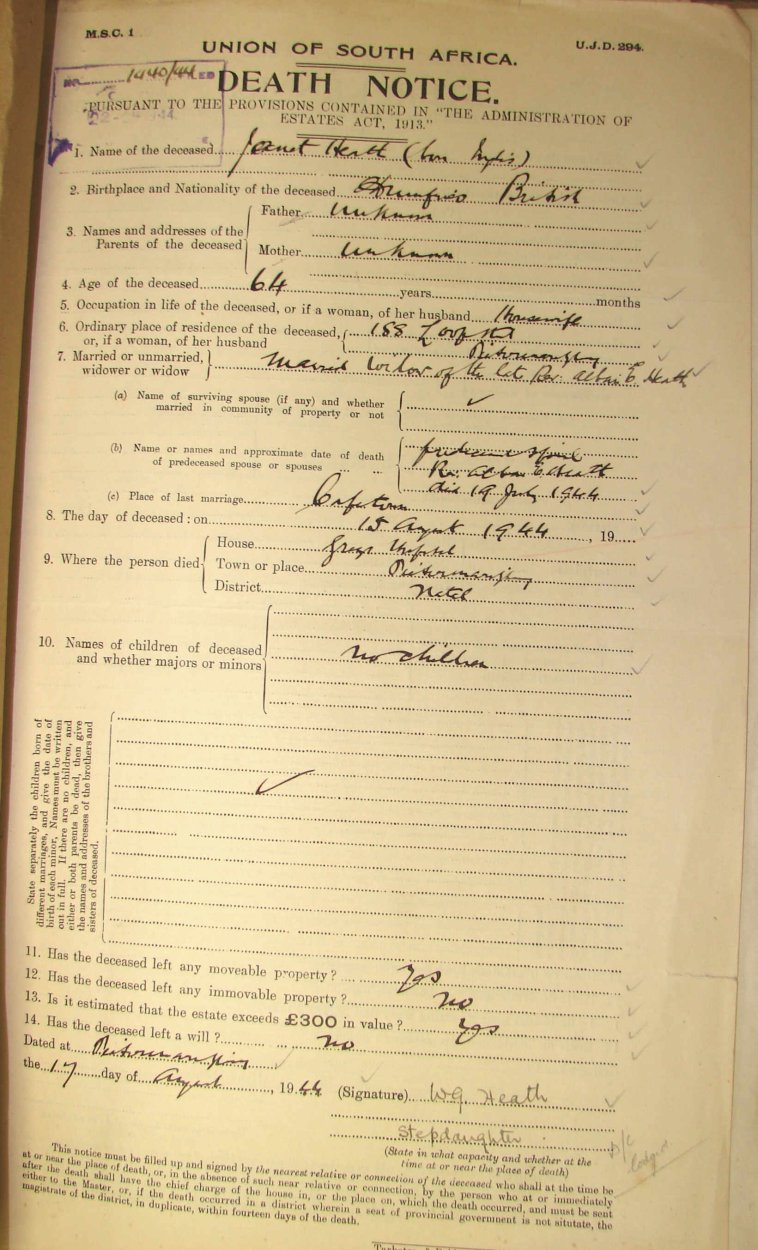 M.S.C. 1
U.J.D. 294.
UNION OF SOUTH AFRICA.
No. 1440/44 ED
DEATH NOTICE.
PURSUANT TO THE PROVISIONS CONTAINED IN "THE ADMINISTRATION OF
ESTATES ACT, 1913."
1. Name of the deceased Janet Heath (born Inglis)
2. Birthplace and Nationality of the deceased Dumfries British
3. Names and addresses of the Parents of the deceased
Father unknown
Mother unknown
4. Age of the deceased 64 years months
5. Occupation in life of the deceased, or if a woman, of her husband Housewife
6. Ordinary place of residence of the deceased, 188 Loop St
or, if a woman, of her husband Pietermaritzburg
7. Married or unmarried, widower or widow Married Widow of the late Rev. Alban E. Heath
(a) Name of surviving spouse (if any) and whether
married in community of property or not
(b) Name or names and approximate date of death
of predeceased spouse or spouses
Rev. Alban E Heath
died 19 July 1944
(c) Place of last marriage Capetown
8. The day of deceased : on 15 August 1944, 19
9. Where the person died
House Greys Hospital
Town or place Pietermaritzburg
District Natal
10. Names of children of deceased
and whether majors or minors
no children
State separately the children born of
different marriages, and give the date of
birth of each minor. Names must be written
out in full. If there are no children, and
either or both parents be dead, then give
the names and addresses of the brothers and
sisters of deceased.
11. Has the deceased left any moveable property? Yes
12. Has the deceased left any immovable property? no
13. Is it estimated that the estate exceeds £300 in value? Yes
14. Has the deceased left a will? no
Dated at Pietermaritzburg
the 17 day of August, 1944 (Signature) W.G. Heath
Stepdaughter
(State in what capacity and whether at the
time at or near the place of death)
This notice must be filled up and signed by the nearest relative or connection of the deceased who shall at the time be
at or near the place of death, or, in the absence of such near relative or connection, by the person who at or immediately
after the death shall have the chief charge of the house in, or the place on, which the death occurred, and must be sent
either to the Master, or, if the death occurred in a district wherein a seat of provincial government is not situtate, the
magistrate of the district, in duplicate, within fourteen days of the death.